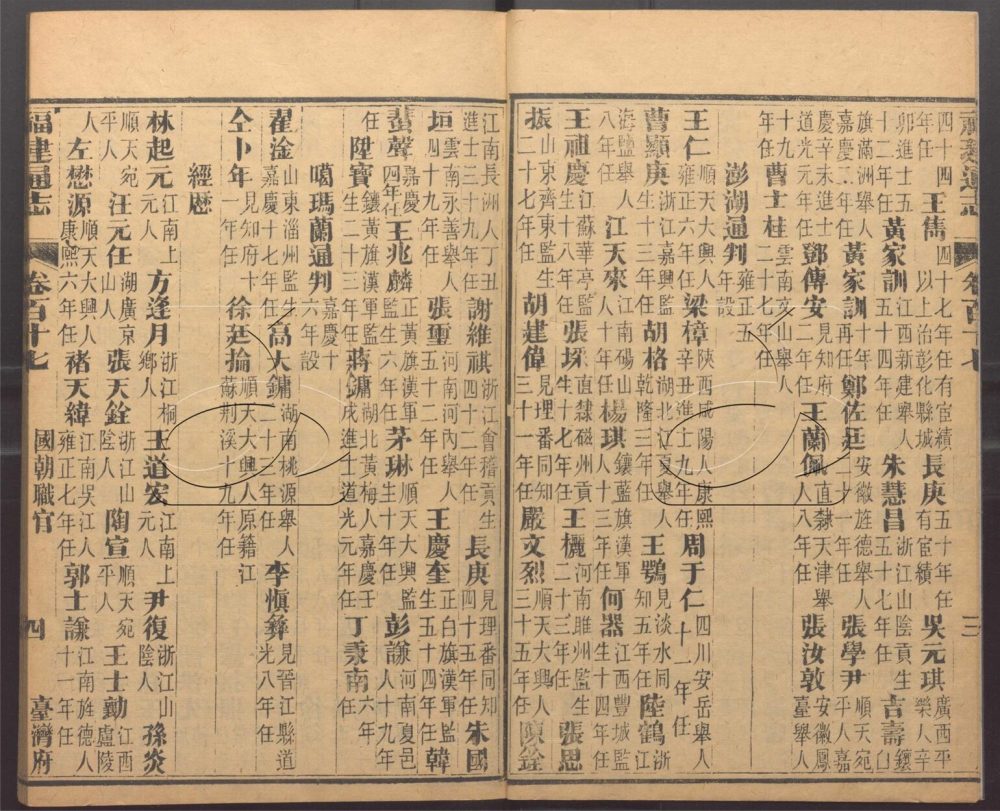 四十四年任王雋四十七年任有宦績以上治彰化縣城長庚五十年任有宦績吳元琪廣西平樂人辛
卯進士五十二年任黃家訓江西新建舉人五十四年任朱慧昌浙江山陰貢生五十七年任吉壽鑲白
旗滿洲舉人嘉慶二年任黃家訓十年再任鄭佐廷安徽旌德舉人二十一年任張學尹順天宛平人嘉
慶辛未進士道光元年任鄧傳安二年任見知府王蘭佩直隸天津舉人八年任張汝敦安徽鳳臺舉人
十九年任曹士桂雲南文山舉人二十七年任
澎湖通判雍正五年設
王仁順天大興人雍正六年任梁樟陝西咸陽人康熙辛丑進士九年任周于仁四川安岳舉人十一年任
曹顯庚浙江嘉興監生十三年任胡格湖北江夏舉人乾隆三年任王鶚見淡水同知五年任陸鶴浙江
海鹽舉人八年任江天來江南碭山人十年任楊琪鑲藍旗漢軍人十三年任何器江西豐城監生十四年任
王祖慶江蘇華亭監生十八年任張埰直隸磁州貢生十七年任王河南睢州監生二十三年任張思
振山東齊東監生二十七年任胡建偉見理番同知三十一年任嚴文烈順天大興人三十五年任陳銓
江南長洲人丁丑進士三十九年任謝維祺浙江會稽貢生四十二年任長庚見理番同知四十五年任朱國
垣雲南永善舉人四十九年任張璽河南河內舉人五十二年任王慶奎正白旗漢軍監生五十四年任韓
蜚聲嘉慶四年任王兆麟正黃旗漢軍監生六年任茅琳順天大興監生十年任彭謙河南夏邑人十九年
任陞寶鑲黃旗漢軍監生二十三年任蔣鏞湖北黃梅人嘉慶壬戌進士道光元年任丁秉南六年任
噶瑪蘭通判嘉慶十六年設
翟淦山東淄州監生嘉慶十七年任高大鏞湖南桃源舉人二十三年任李愼彝見晉江縣道光八年任
仝卜年見知府卜一年任徐廷掄順天大興人原籍江蘇荆溪十九年任
經歷
林起元江南上元人方逢月浙江桐鄉人王道安江南上元人尹復浙江山陰人孫炎
順天宛平人汪元任湖廣京山人張天銓浙江山陰人陶宣順天宛平人王士勷江西廬陵
人左懋源順天大興人康熙六年任褚天緯江南吳江人雍正七年任郭士謙江南旌德人十一年任
福建通志 卷百十七 國朝職官 四 臺灣府